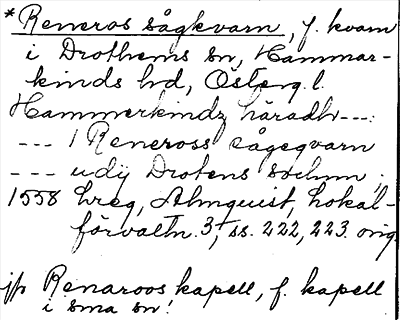 * Reneros sågkvarn, f. kvarn
i Drothems sn, Hammar-
kinds hd, Österg. l.
Hammerkindz häradh ---:
--- 1 Reneross sågeqvarn
--- udij Drotens sochnn;
1558 hreg, Almquist, Lokal-
förvaltn. 3, ss. 222, 223. orig.
jfr Renaroos kapell, f. kapell
i sma sn!